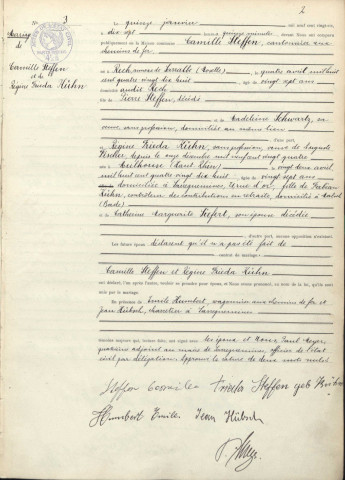 2
N° 3
Mariage
de
Camille Steffen
et de
Régine Frieda Kühn
Le quinze janvier mil neuf cent vingt-six,
à dix sept heures quinze minutes devant Nous ont comparu
publiquement en la Maison commune Camille Steffen, cantonnier aux
chemins de fer
né à Rech, annexe de Sarralbe (Moselle) le quatre avril mil huit
cent quatre vingt dix huit, âgé de vingt sept ans
domicilié audit Rech
fils de Pierre Steffen, décédé
et de Madeleine Schwartz, sa
veuve sans profession, domiciliée au même lieu
d'une part,
et Régine Frieda Kühn, sans profession, veuve de Auguste
Fischer depuis le onze décembre mil neuf cent vingt quatre
née à Mulhouse (Haut Rhin) le vingt deux avril
mil huit cent quatre vingt dix huit, âgée de vingt sept ans
domiciliée à Sarreguemines, fille de
Kühn, contrôleur des contributions en retraite, domicilié à
(Bade)
et de Catherine Marguerite Siefert, son épouse décédée
d'autre part,
Les futurs époux déclarent qu'il n'a pas été fait de
contrat de mariage
Camille Steffen et Régine Frieda Kühn
ont déclaré, l'un après l'autre, vouloir se prendre pour époux, et Nous avons prononcé, au nom de la loi, qu'ils sont
unis par le mariage.
En présence de Emile Humbert, wagonnier aux chemins de fer et
Jean Hübsch, charretier à Sarreguemines
témoins majeurs, qui, lecture faite, ont signé avec les époux et Nous Paul Meyer,
quatrième adjoint au maire de Sarreguemines, officier de l'état
civil par délégation. Approuvé la rature de deux mots nuls.
Steffen Camille Frieda Steffen geb Kühn
Humbert Emile Jean Hübsch
P. Meyer